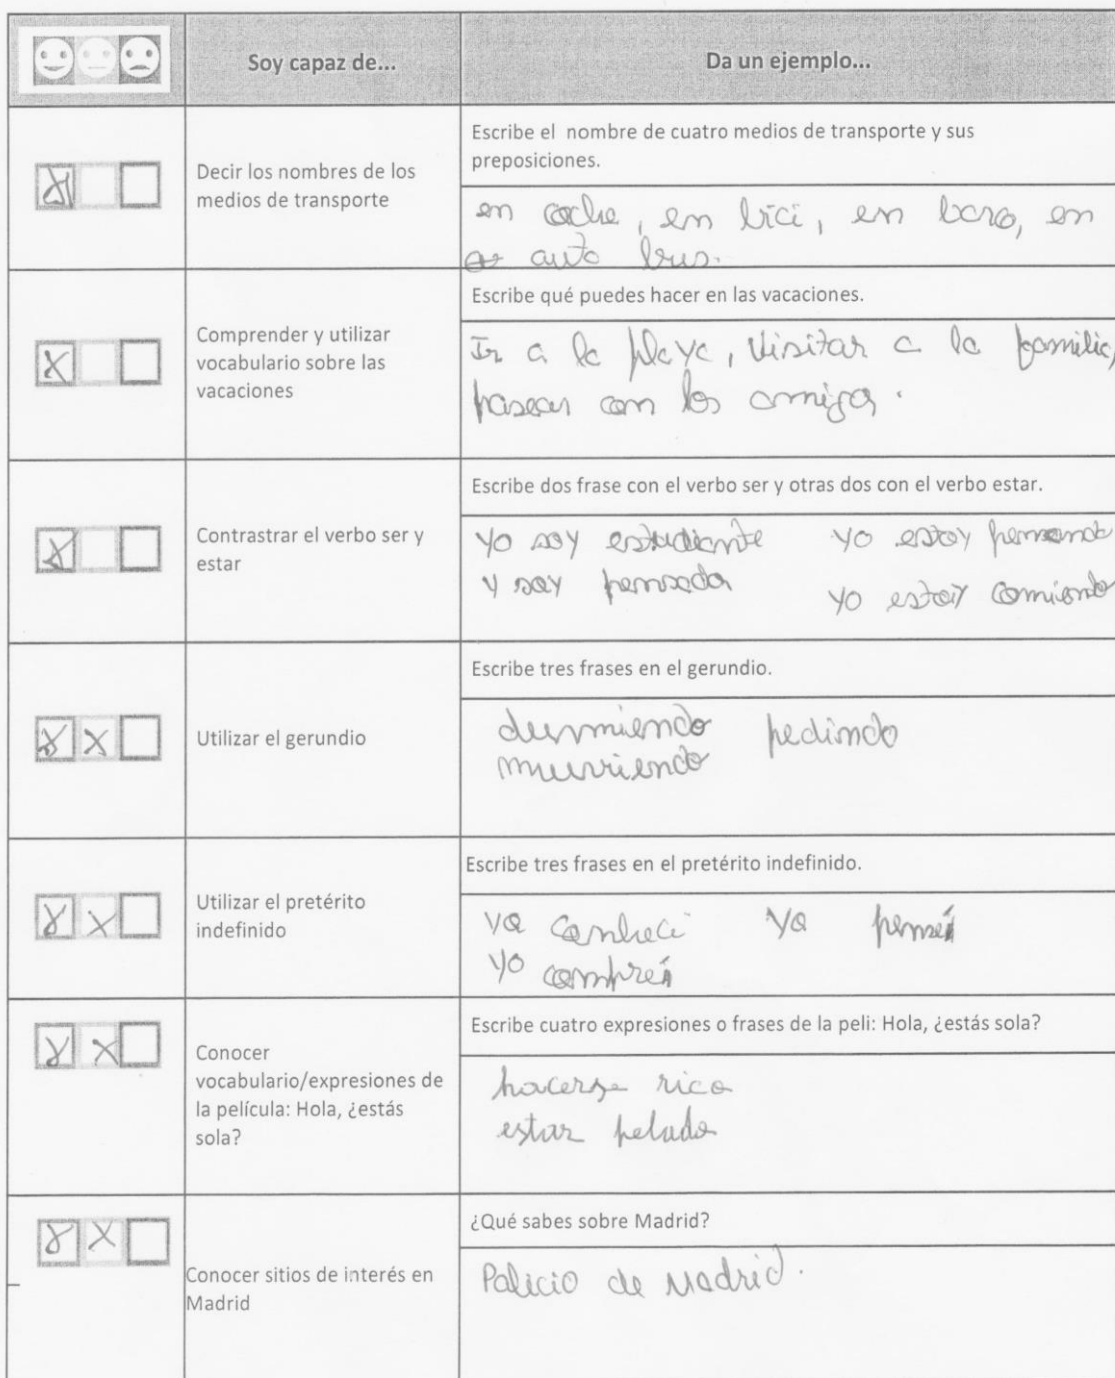 Soy capaz de...
Da un ejemplo...
Decir los nombres de los
medios de transporte
Escribe el nombre de cuatro medios de transporte y sus
preposiciones.
en coche, en bici, en baro, en
auto bus.
Comprender y utilizar
vocabulario sobre las
vacaciones
Escribe qué puedes hacer en las vacaciones.
Ir a la playa, Visitar a la familia,
pasear con los amigos.
Contrastar el verbo ser y
estar
Escribe dos frase con el verbo ser y otras dos con el verbo estar.
yo soy estudiante yo estoy pensando
y soy pensador yo estoy comiendo
Utilizar el gerundio
Escribe tres frases en el gerundio.
durmiendo pedindo
murriendo
Utilizar el pretérito
indefinido
Escribe tres frases en el pretérito indefinido.
yo conheci yo pensé
yo compré
Conocer
vocabulario/expresiones de
la película: Hola, ¿estás
sola?
Escribe cuatro expresiones o frases de la peli: Hola, ¿estás sola?
hacerse rico
estar pelado
Conocer sitios de interés en
Madrid
¿Qué sabes sobre Madrid?
Palicio de Madrid.